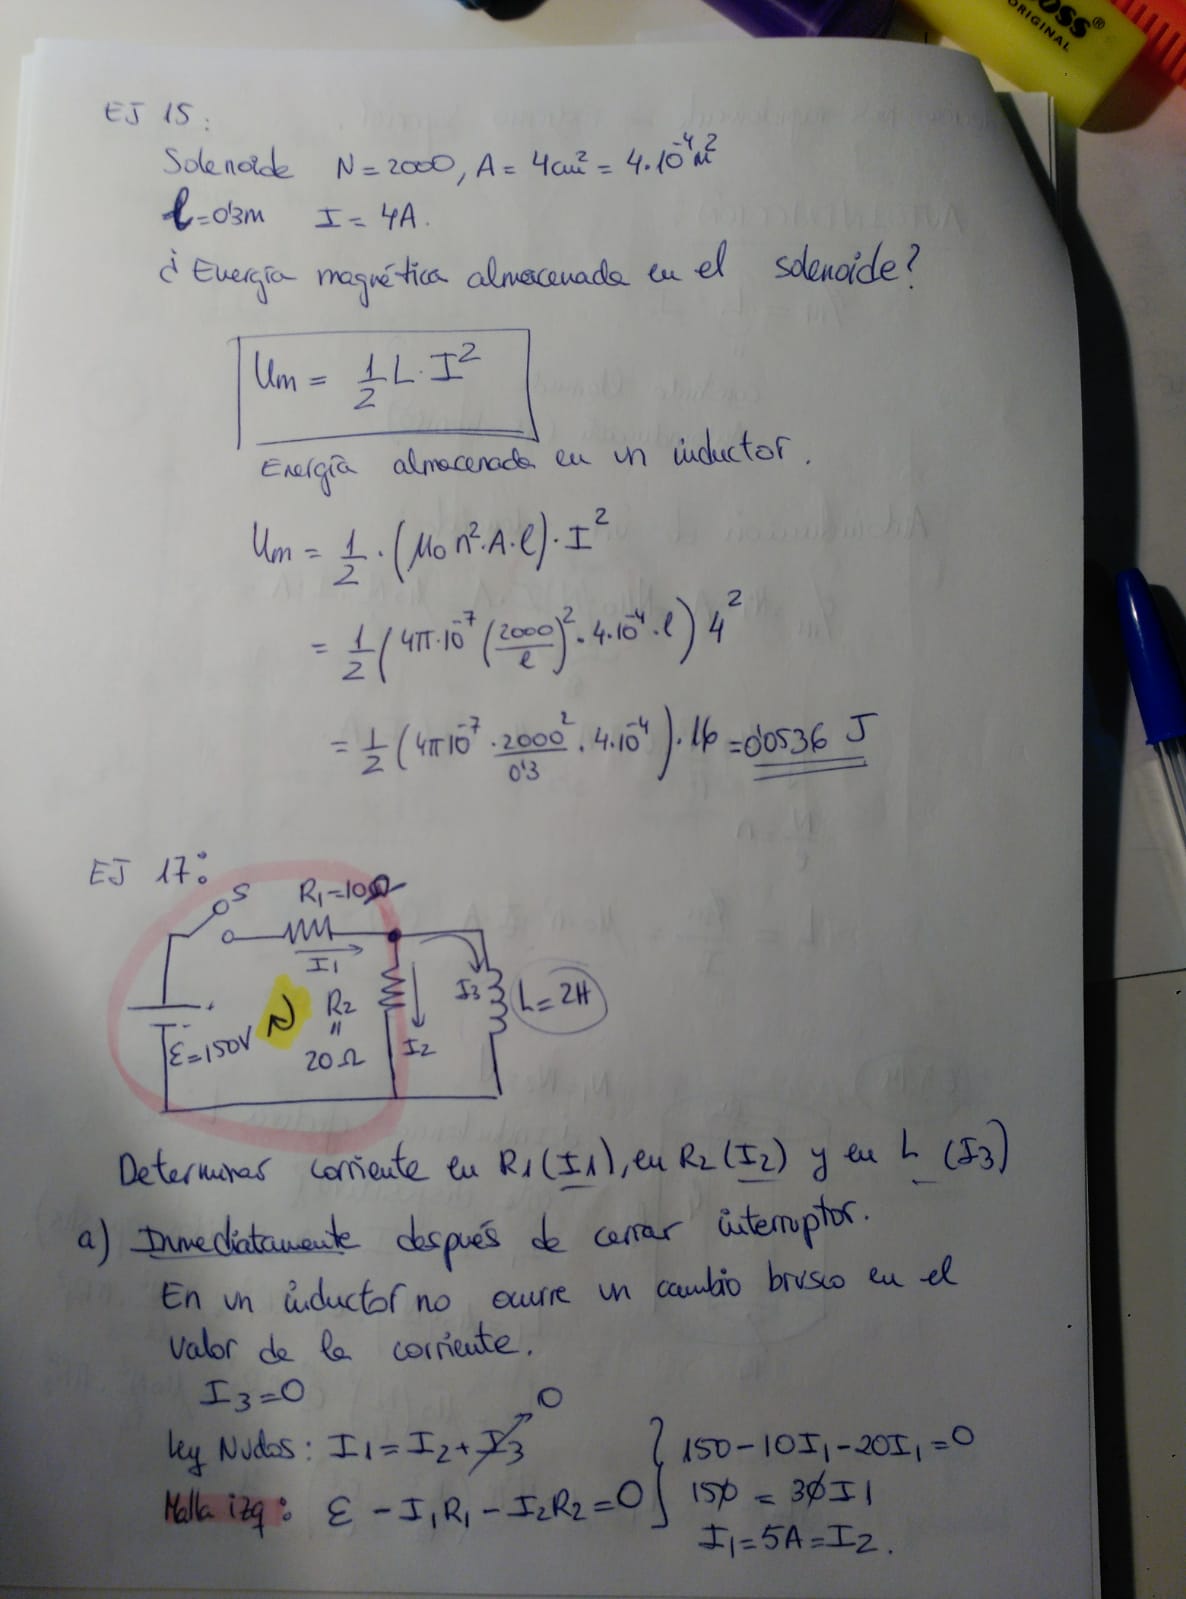 BOSS®
ORIGINAL
EJ 15:
Solenoide N = 2000, A = 4cm² = 4·10⁻⁴m²
l=0'3m I = 4A.
¿Energía magnética almacenada en el solenoide?
Um = 1/2 L·I²
Energía almacenada en un inductor.
Um = 1/2 · (μ₀ n²·A·l)·I²
= 1/2 (4π·10⁻⁷ (2000/l)²·4·10⁻⁴·l) 4²
= 1/2 (4π10⁻⁷ · 2000²/0'3 · 4·10⁻⁴)·16 = 0'0536 J
EJ 17:
S R₁=10Ω
I₁
I₃ L=2H
R₂
"
20Ω
+
-
ε=150V
I₂
Determinar corriente en R₁(I₁), en R₂(I₂) y en L (I₃)
a) Inmediatamente después de cerrar interruptor.
En un inductor no ocurre un cambio brusco en el
valor de la corriente.
I₃=0
Ley Nudos: I₁=I₂+I₃ 0
Malla izq: ε - I₁R₁ - I₂R₂=0
150-10I₁-20I₁=0
150 = 30I₁
I₁=5A=I₂.